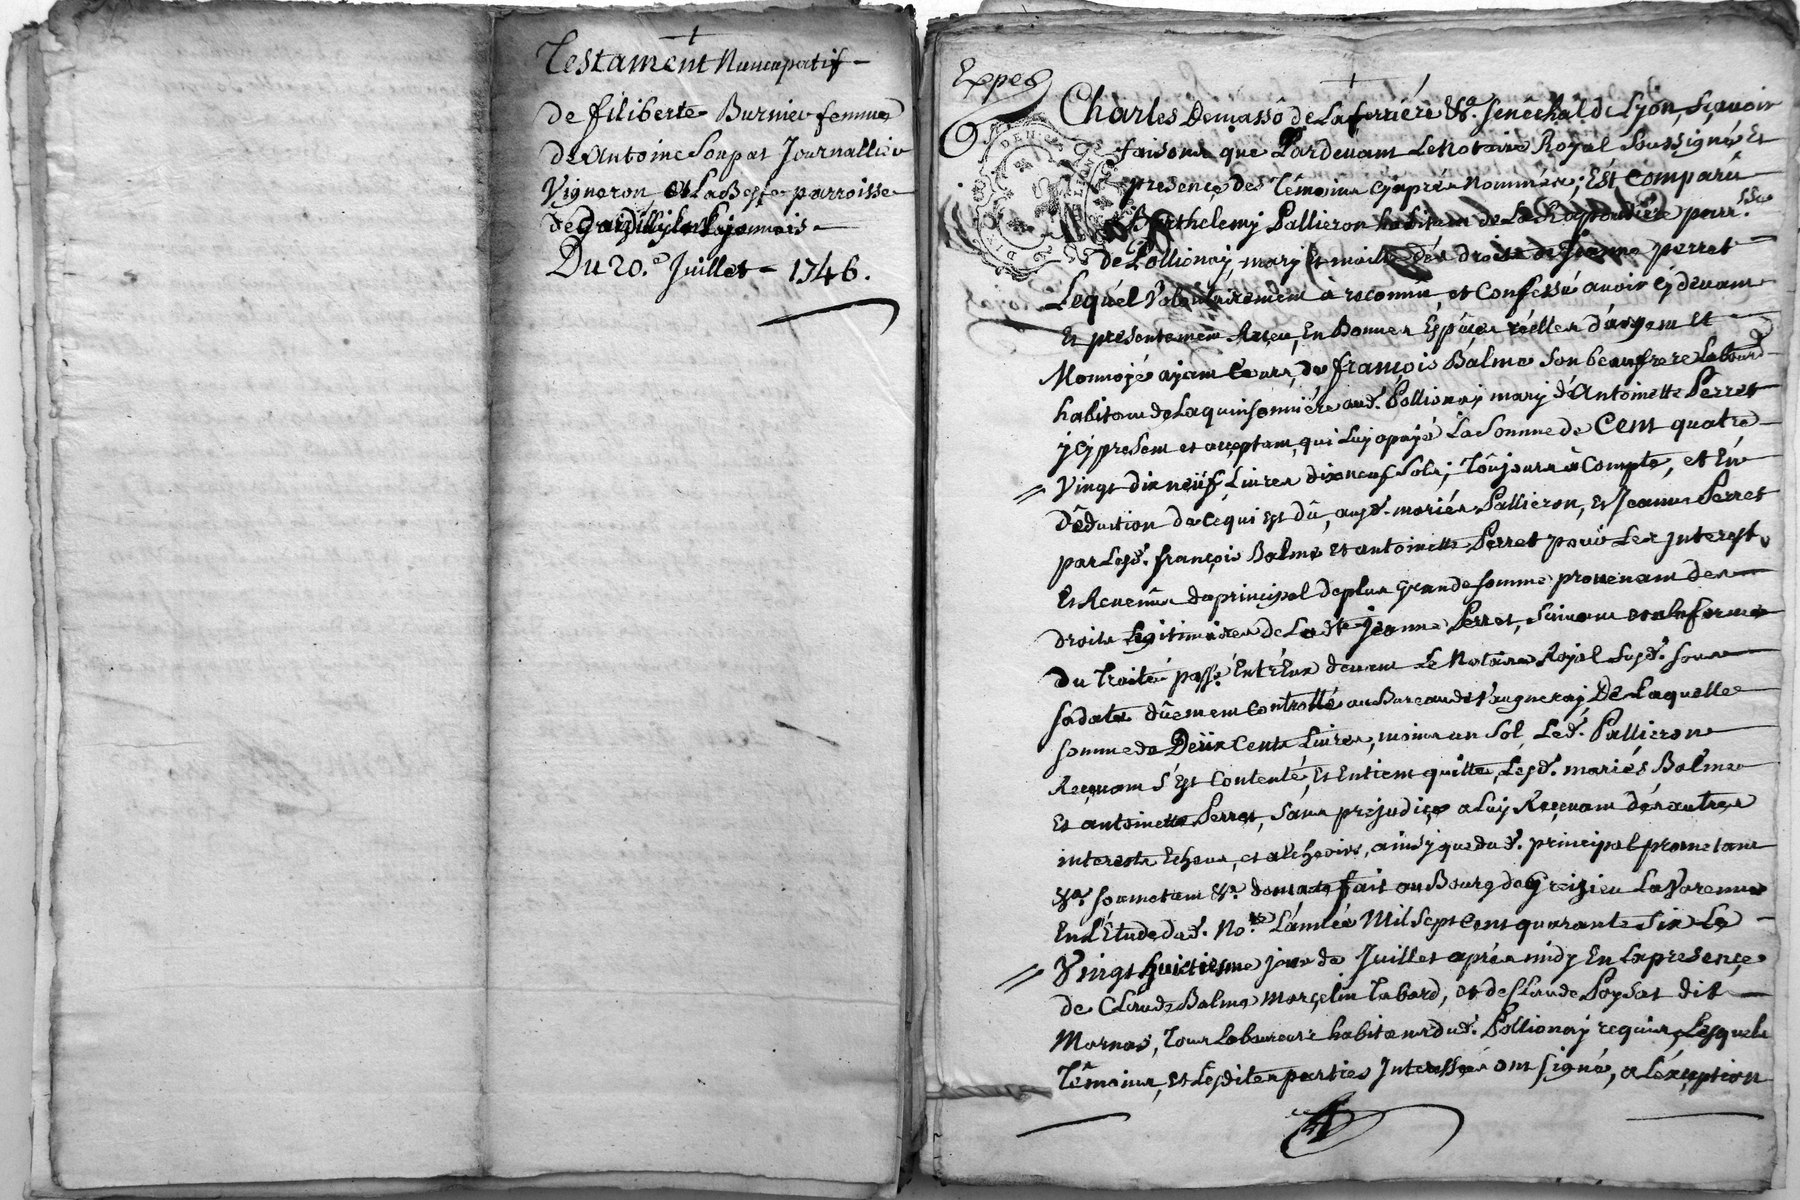 Testament Nuncupatif
de filiberte Burnier femme
de Antoine Soupat Journallier
Vigneron et La Beffe parroisse
de dardilly en Lyonnois
Du 20.e Juillet 1746.
Expes
Charles Demasso de Laferriere &a. Senéchal de Lyon, sçavoir
faisons que Pardevant Le Notaire Royal Soussigné et
presençe des Témoins cyaprés Nommés; Est Comparû
Barthelemy Pallieron habitant de parr.sse
de Pollionay, mary et maitre des droits de Jeanne perret
Lequel Volontairement à reconnu, et Confessé avoir cy devant
Et presentement Reçeu, En Bonnes Espéces réelles d'argent et
Monnoyé ayant Cours, de françois Balme Son beaufrere Labour.
habitant de Laquinsonniére aud. Pollionay mary d'Antoinette Perret
ycy present et acçeptant, qui Luy a payé La Somme de Cent quatre
Vingt dix neuf Livres dixneuf Sols; Toûjours à Compte, et En
Déduction de ce qui Est dû, ausd. mariés Pallieron, et Jeanne Perret
par Lesd. françois Balme et antoinette Perret pour Les Interest
Et Revenus du principal de plus grande Somme provenant des
droits Legitimaires de Lad.te Jeanne Perret, Suivant et a la forme
du Traité passé Entr'Eux devant Le Notaire Royal Susd. Sous
Sa date dûement Controllé au Bureau de Vaugneray De Laquelle
Somme de Deux Cents Livres, moins un Sol, Led. Pallieron
Reçevant S'est Contenté, Et Entient quitte, Lesd. mariés Balme
Et antoinette Perret, Sans prejudiçe a Luy Reçevant des autres
interests Echeus, et a Echeoir, ainsy que dud. principal prometant
&a. Soumetant &a. dont acte fait au Bourg de Greizieu La Varenne
En L'Etude dud. No.re L'année Mil Sept Cent quarante Six Le
Vingt huictiesme jour de Juillet aprés midy En La presençe
de Claude Balme Marçelin Tabard, et de Claude Poysat dit
Mornas, Tous Laboureurs habitans dud. Pollionay requis, Lesquels
Témoins, et Lesdites parties Interessées ont Signé, a L'éxçeption